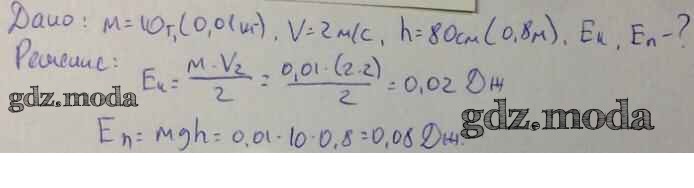 Дано: m=10г,(0,01кг), V=2м/с, h=80см(0,8м). Eк, Eп-?
Решение:
Eк= m·V2/2 = 0,01·(2·2)/2 = 0,02 Дж
gdz.moda
Eп= mgh=0,01·10·0,8=0,08Дж.
gdz.moda